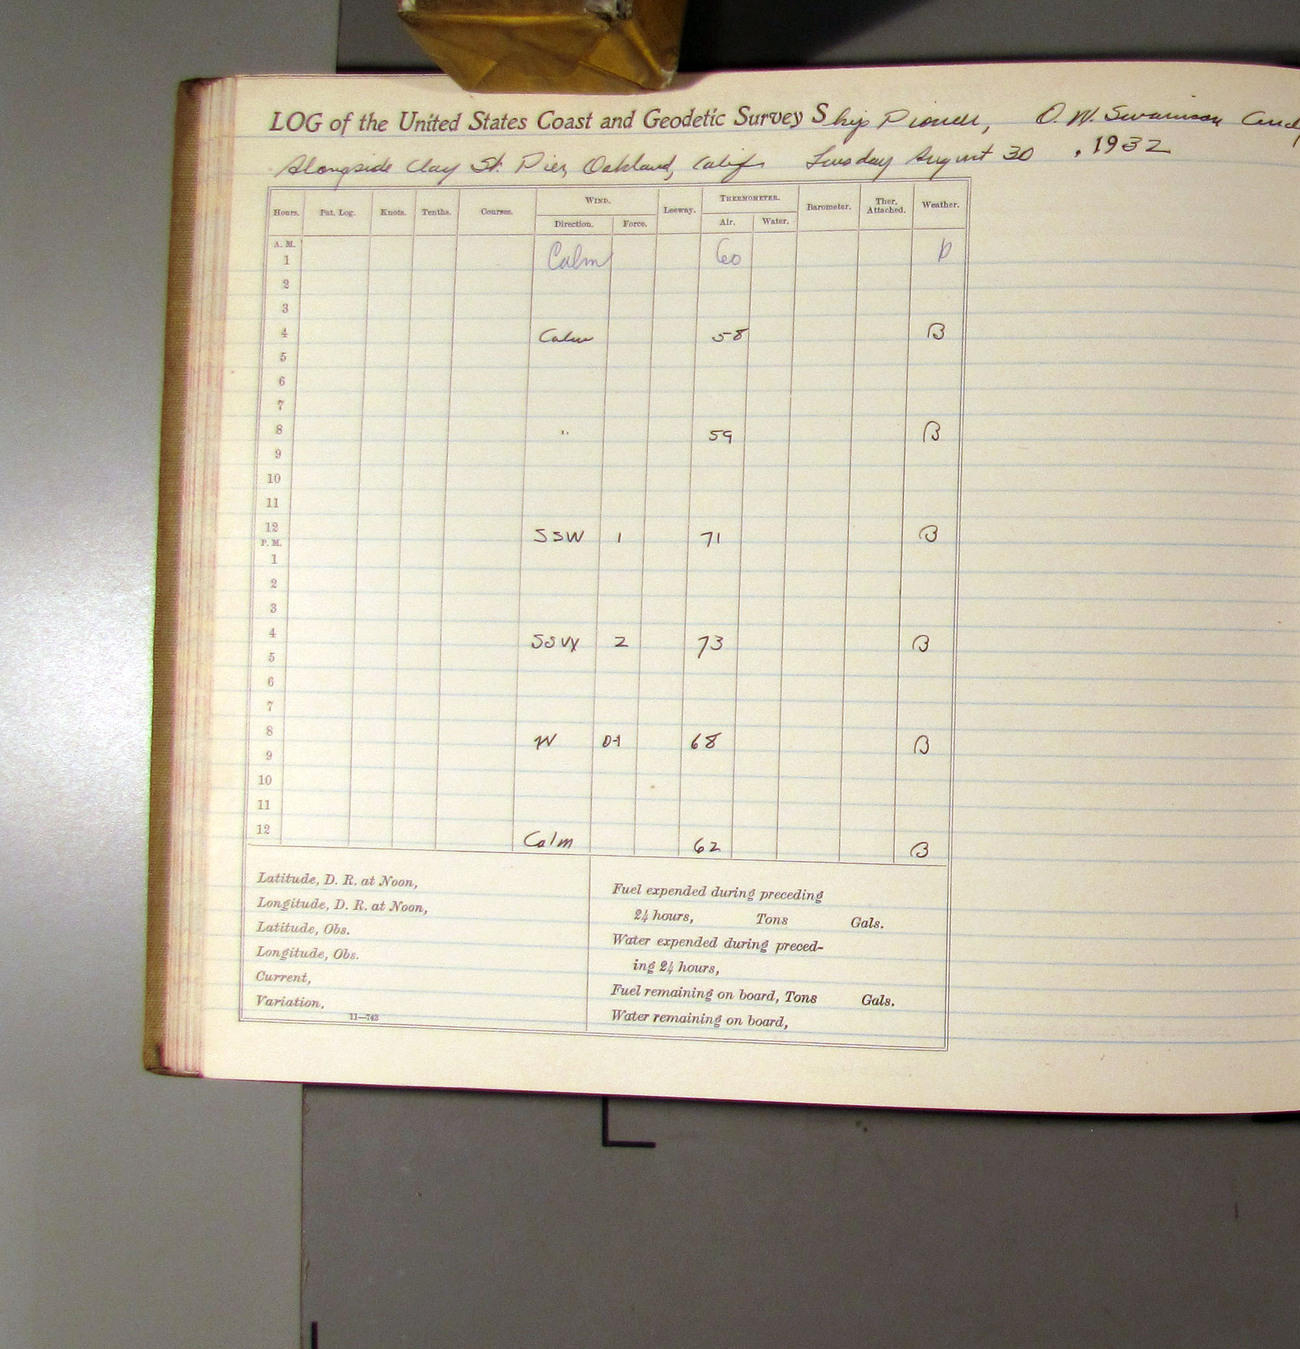 LOG of the United States Coast and Geodetic Survey Ship Pioneer, O. W. Swainson Cmdg
Alongside Clay St. Pier, Oakland, Calif. Tuesday August 30, 1932
Hours. Pat. Log. Knots. Tenths. Courses. WIND. Direction. Force. Leeway. THERMOMETER. Air. Water. Barometer. Ther. Attached. Weather.
A. M.
1 Calm 60 b
2
3
4 Calm 58 B
5
6
7
8 " 59 B
9
10
11
12 SSW 1 71 B
P. M.
1
2
3
4 SSW 2 73 B
5
6
7
8 W 0-1 68 B
9
10
11
12 Calm 62 B
Latitude, D. R. at Noon,
Longitude, D. R. at Noon,
Latitude, Obs.
Longitude, Obs.
Current,
Variation,
11—743
Fuel expended during preceding
24 hours, Tons Gals.
Water expended during preced-
ing 24 hours,
Fuel remaining on board, Tons Gals.
Water remaining on board,